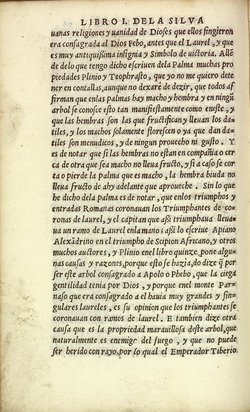 LIBRO I. DE LA SILVA
uanas religiones y vanidad de Dioses que ellos fingieron
era consagrada al Dios Febo, antes que el Laurel, y que
es muy antiquissima insignia y Simbolo de victoria. Allẽ
de delo que tengo dicho escriuen dela Palma muchas pro
piedades Plinio y Teophrasto, que yo no me quiero dete
ner en contallas, aunque no dexarè de dezir, que todos af
firman que enlas palmas hay macho y hembra y en ningũ
arbol se conose esto tan manifiestamente como eneste, y
que las hembras son las que fructifican y lleuan los da
tiles, y los machos solamente florescen o ya que dan dati
les son menudicos, y de ningun prouecho ni gusto. Y
es de notar que si las hembras no estan en compañia o cer
ca de otra que sea macho no lleua fructo, y si a caso se cor
ta o pierde la palma que es macho, la hembra biuda no
lleua fructo de ahy adelante que aproueche. Sin lo que
he dicho dela palma es de notar, que enlos triumphos y
entradas Romanas coronauan los Triumphantes de co-
ronas de laurel, y el capitan que assi triumphaua lleua-
ua un ramo de Laurel enla mano; assi lo escriue Apiano
Alexãdrino en el triumpho de Scipion Africano, y otros
muchos auctores, y Plinio enel libro quinze, pone algu-
nas causas y razones, porque esto se hazia, do dize q̃ por
ser este arbol consagrado a Apolo o Phebo, que la ciega
gentilidad tenia por Dios, y porque enel monte Parnaso
naso que era consagrado a el hauia muy grandes y sin-
gulares laureles, es su opinion que los triumphantes se
coronauan con ramos de laurel. E tambien dize otra
causa que es la propriedad marauillosa deste arbol, que
naturalmente es enemigo del fuego, y que no puede
ser herido con rayo, por lo qual el Emperador Tiberio